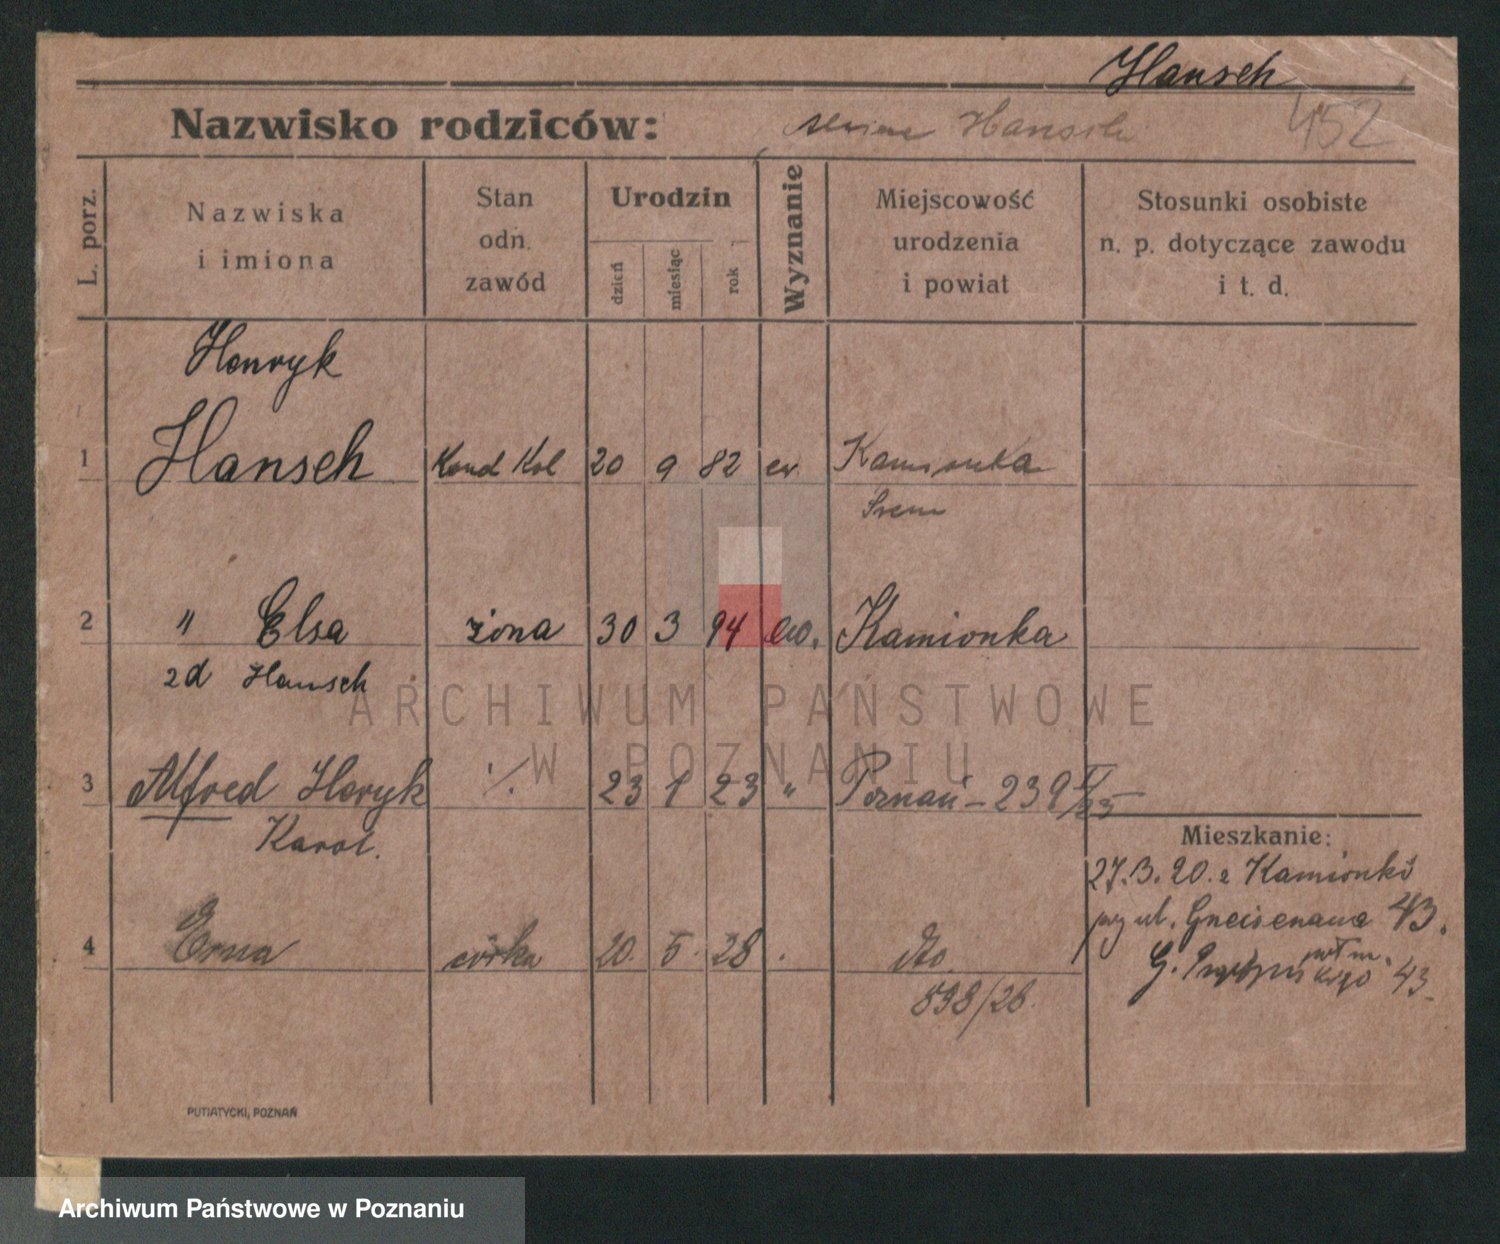 Hansch
Nazwisko rodziców: Hansch 452
L. porz.
Nazwiska
i imiona
Stan
odn.
zawód
Urodzin
dzień
miesiąc
rok
Wyznanie
Miejscowość
urodzenia
i powiat
Stosunki osobiste
n. p. dotyczące zawodu
i t. d.
Henryk
1 Hansch Kond Kol 20 9 82 ew Kamionka
Srem
2 " Elsa żona 30 3 94 ew. Kamionka
zd Hansch
3 Alfred Henryk ./. 23 1 23 " Poznań - 239
Karol.
4 Erna córka 20. 5. 28 . dto.
898/28.
Mieszkanie:
27.3.20. z Kamionki
przy ul. Gneisenaua 43.
G. 43.
PUTIATYCKI, POZNAŃ
ARCHIWUM PAŃSTWOWE
W POZNANIU
Archiwum Państwowe w Poznaniu